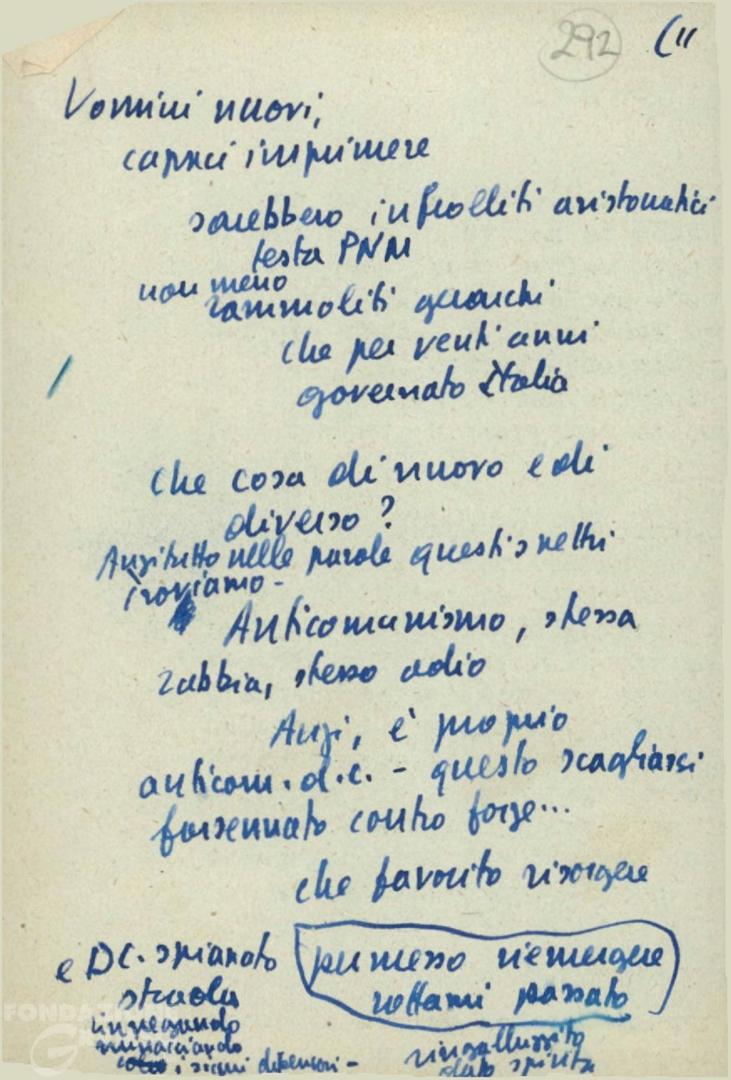 292 (11
Uomini nuovi,
capaci imprimere
sarebbero infrolliti aristocratici
testa PNM
non meno
rammolliti gerarchi
che per venti anni
governato Italia
che cosa di nuovo e di
diverso?
Anzitutto nelle parole questi spettri
troviamo -
Anticomunismo, stessa
rabbia, stesso odio
Anzi, è proprio
anticom. d.c. - questo scagliarsi
forsennato contro forze...
che favorito risorgere
e DC. spianato
strada
permesso riemergere
rottami passato
minacciando
i suoi difensori -
ringalluzzito
dato spirito
FONDAZIONE